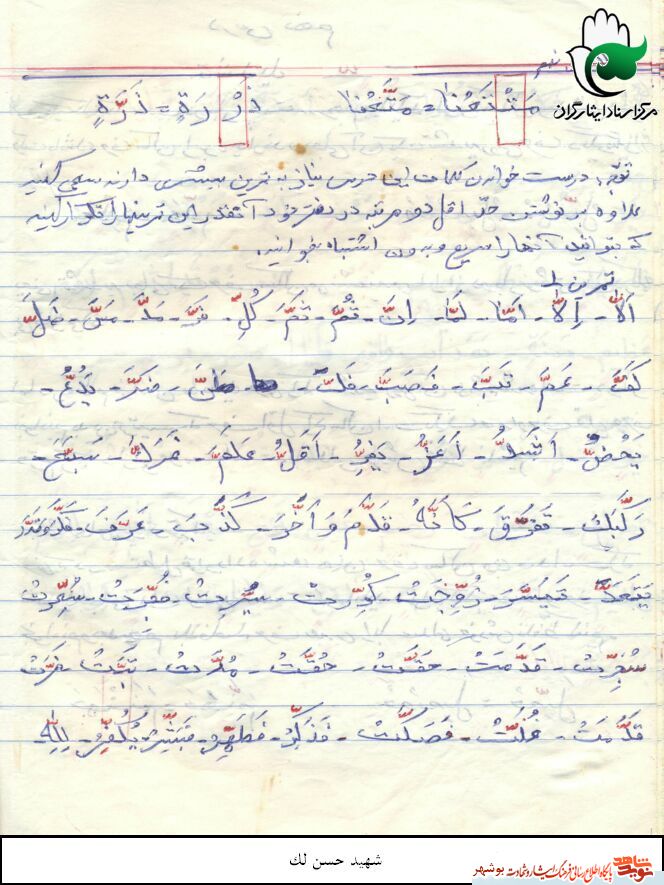 مرکز اسناد ایثارگران
مَتْتَعْنا = مَتَّعْنا ذَرْرَةٍ = ذَرَّةٍ
توجه: درست خواندن کلمات این درس نیاز به تمرین بیشتری دارند سعی کنید
علاوه بر نوشتن حداقل دو مرتبه در دفتر خود آنقدر این تمرینها را تکرار کنید
که بتوانید آنها را سریع و بدون اشتباه بخوانید.
تمرین ۱
اَلّا - اِلّا - اَمّا - لَمّا - اِنَّ - ثُمَّ - ثَمَّ - كُلِّ - مَدَّ - مَسَّ -
كَفَّ - عَمَّ - تَبَّ - فَصَبَّ - ظَنَّ - يَدُعُّ -
يَحُضُّ - اَشَدُّ - اَعَزُّ - يَفِرُّ - اَقَلَّ - عَلَّمَ - سَبَّحَ -
رَكَّبَكَ - تَفَرَّقَ - كَاَنَّهُ - قَدَّمَ وَ اَخَّرَ - كَذَّبَ - عَرَّفَ -
تَيَسَّرَ - زُوِّجَتْ - كُوِّرَتْ - سُيِّرَتْ - سُعِّرَتْ
سُجِّرَتْ - قَدَّمَتْ - حُقَّتْ - مُدَّتْ - تَبَّتْ -
قَدَّمَتْ - فَصَكَّتْ - فَذَكِّرْ - فَطَهِّرْ - يُكَفِّرُ - لِلّهِ -
شهید حسن لک
نوید شاهد
پایگاه اطلاع رسانی فرهنگ ایثار و شهادت بوشهر